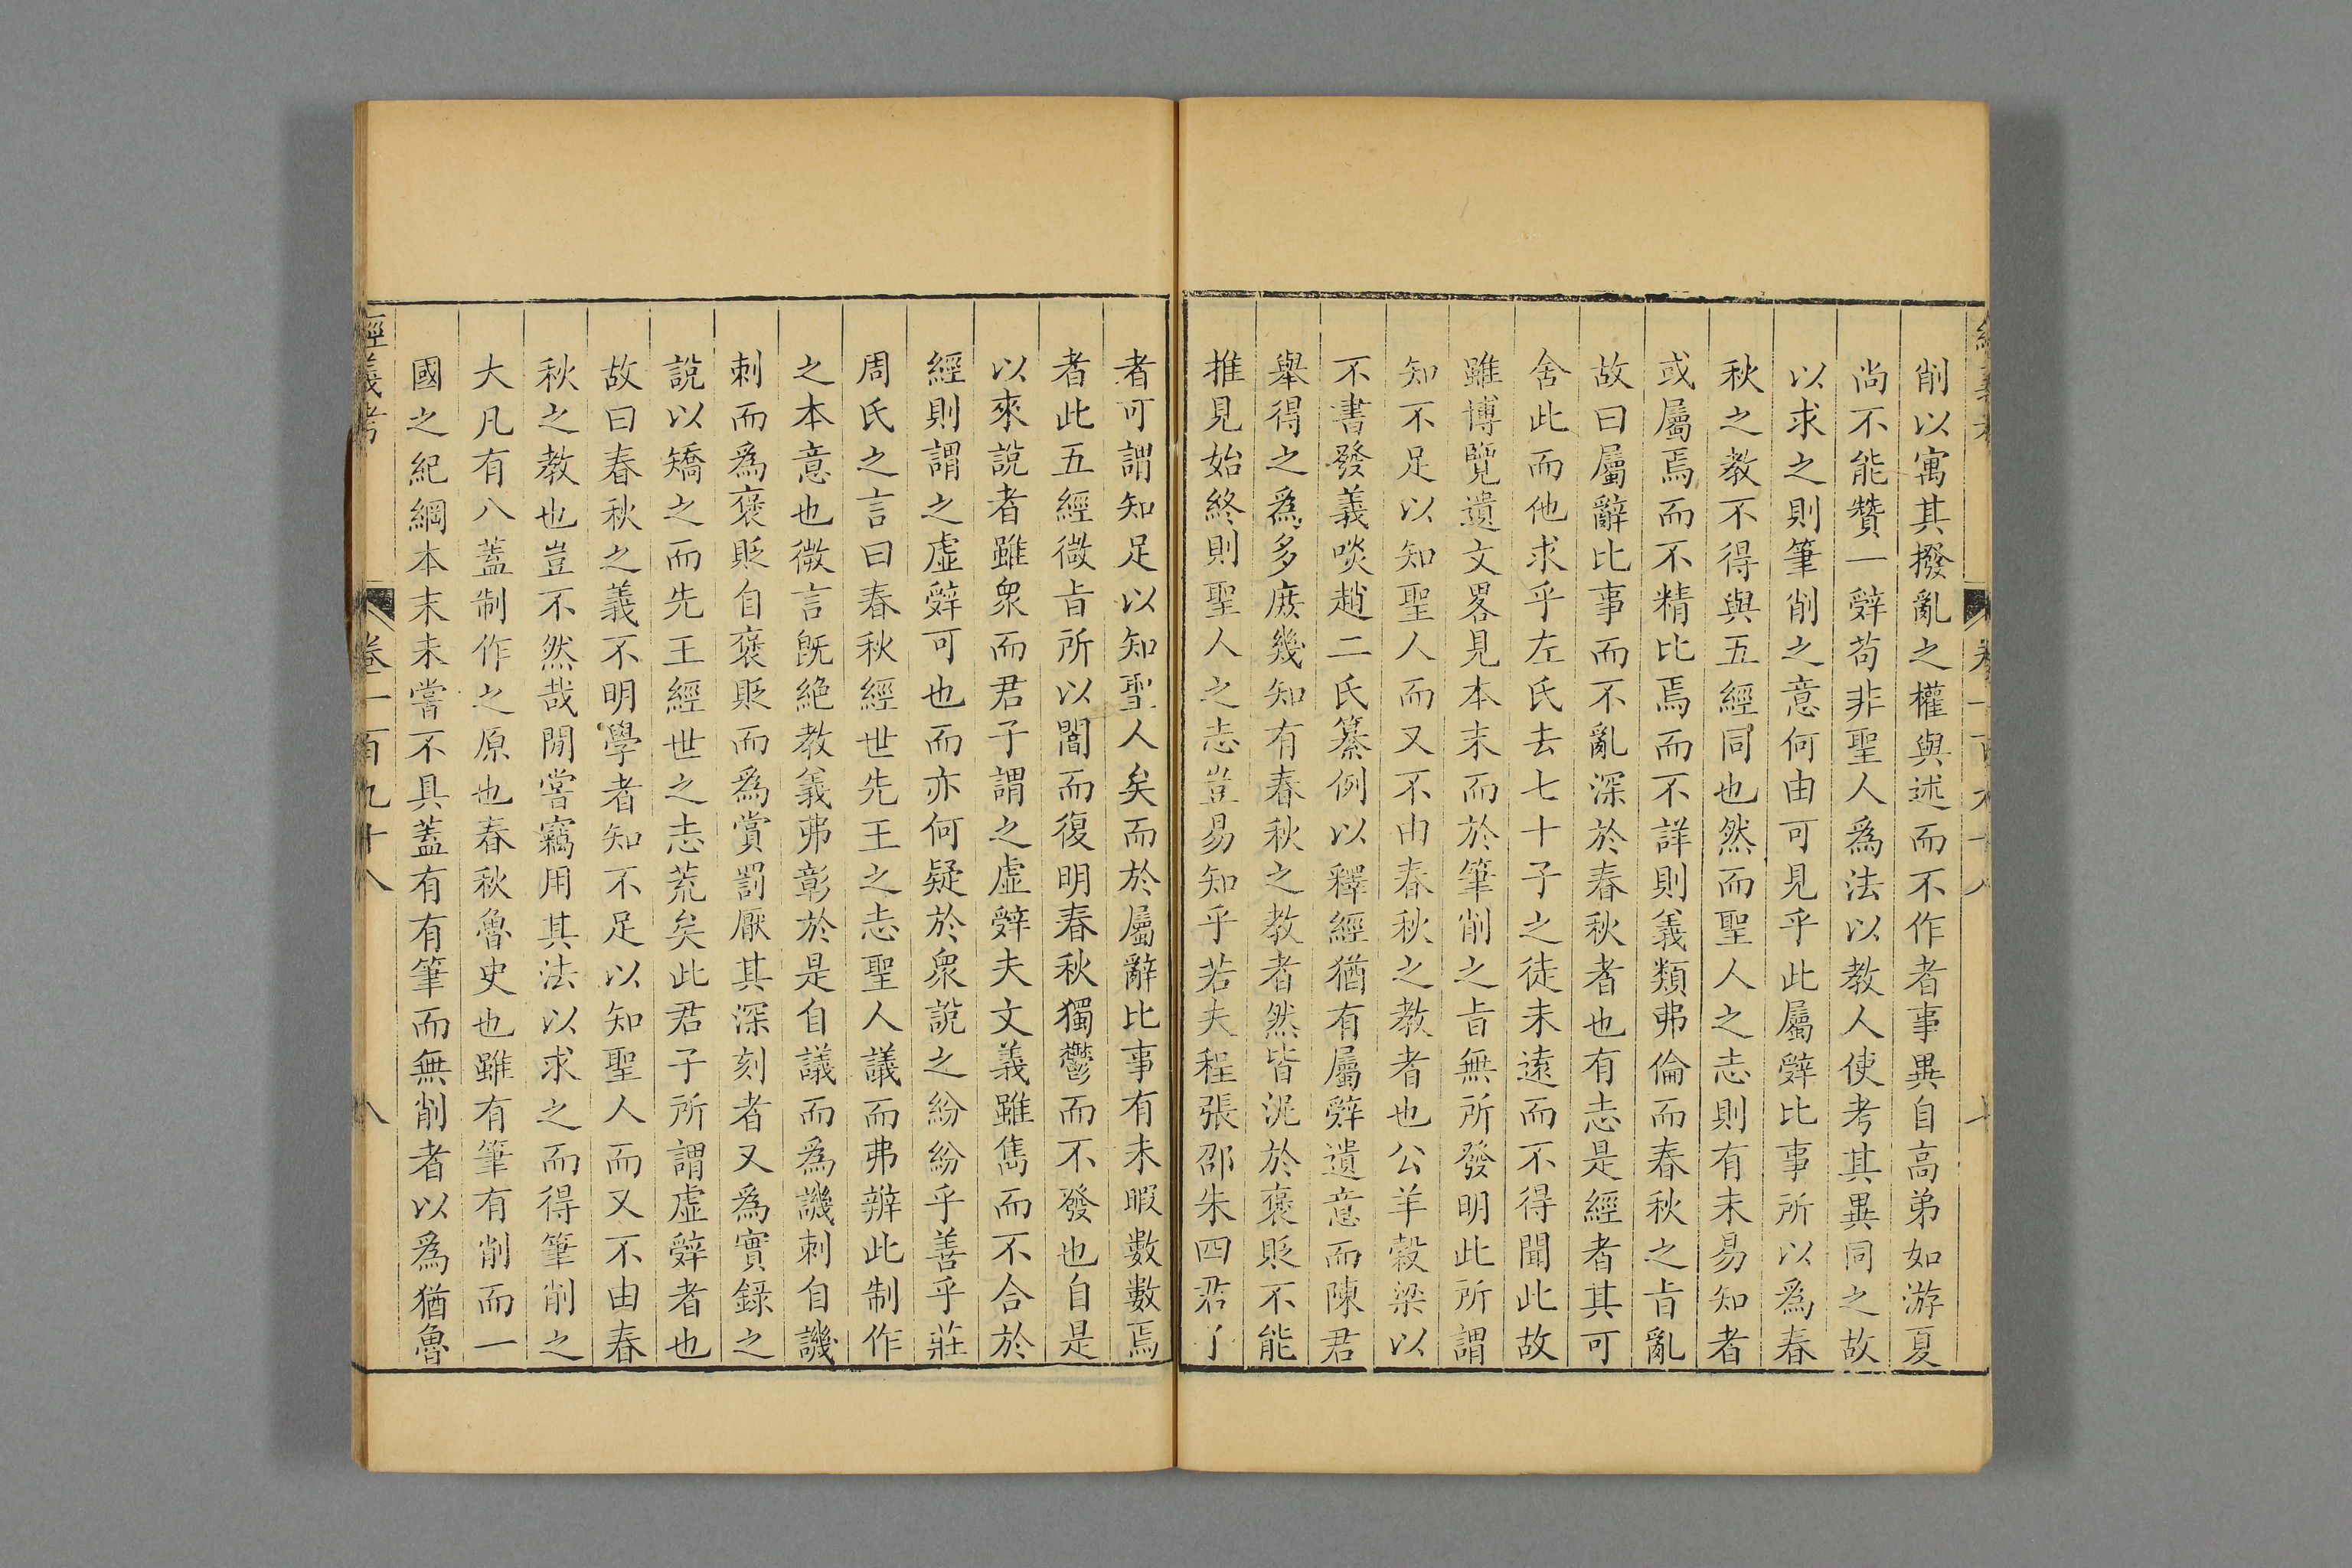 削以寓其撥亂之權與述而不作者事異自高弟如游夏
尚不能贊一辤苟非聖人爲法以教人使考其異同之故
以求之則筆削之意何由可見乎此屬辤比事所以爲春
秋之教不得與五經同也然而聖人之志則有未易知者
或屬焉而不精比焉而不詳則義類弗倫而春秋之旨亂
故曰屬辭比事而不亂深於春秋者也有志是經者其可
舍此而他求乎左氏去七十子之徒未遠而不得聞此故
雖博覽遺文畧見本末而於筆削之旨無所發明此所謂
知不足以知聖人而又不由春秋之教者也公羊穀梁以
不書發義啖趙二氏纂例以釋經猶有屬辤遺意而陳君
舉得之爲多庶幾知有春秋之教者然皆泥於褒貶不能
推見始終則聖人之志豈易知乎若夫程張邵朱四君子
者可謂知足以知聖人矣而於屬辭比事有未暇數數焉
者此五經微旨所以闇而復明春秋獨鬱而不發也自是
以來說者雖衆而君子謂之虛辤夫文義雖雋而不合於
經則謂之虛辤可也而亦何疑於衆說之紛紛乎善乎莊
周氏之言曰春秋經世先王之志聖人議而弗辨此制作
之本意也微言旣絶教義弗彰於是自議而爲譏刺自譏
刺而爲褒貶自褒貶而爲賞罰厭其深刻者又爲實錄之
說以矯之而先王經世之志荒矣此君子所謂虛辤者也
故曰春秋之義不明學者知不足以知聖人而又不由春
秋之教也豈不然哉閒嘗竊用其法以求之而得筆削之
大凡有八蓋制作之原也春秋魯史也雖有筆有削而一
國之紀綱本末未嘗不具蓋有有筆而無削者以爲猶魯
經義考 卷一百九十八 八